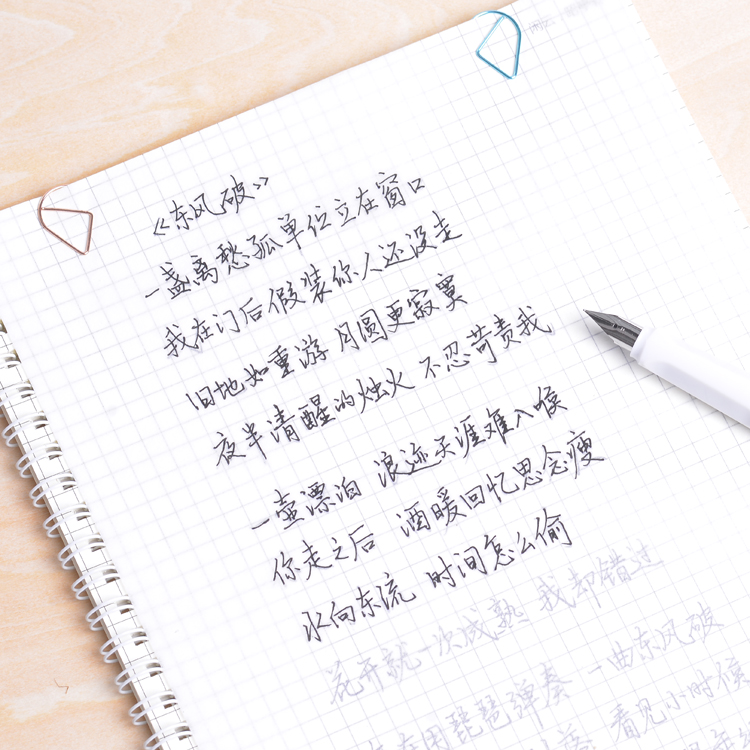 《东风破》
一盏离愁 孤单伫立在窗口
我在门后 假装你人还没走
旧地如重游 月圆更寂寞
夜半清醒的烛火 不忍苛责我
一壶漂泊 浪迹天涯难入喉
你走之后 酒暖回忆思念瘦
水向东流 时间怎么偷
花开就一次成熟 我却错过
在用琵琶弹奏 一曲东风破
看见小时候